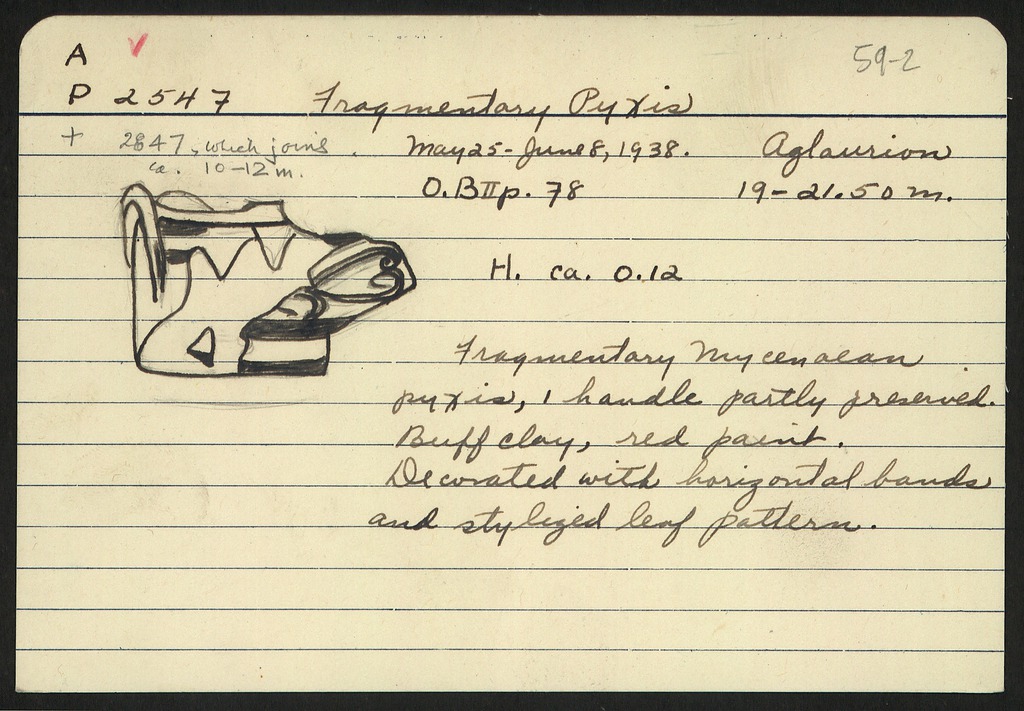 A ✓ 59-2
P 2547 Fragmentary Pyxis
+ 2847, which joins. May 25-June 8, 1938. Aglaurion
ca. 10-12 m. O.BII p. 78 19-21.50 m.
H. ca. 0.12
Fragmentary Mycenaean
pyxis, 1 handle partly preserved.
Buff clay, red paint.
Decorated with horizontal bands
and stylized leaf pattern.